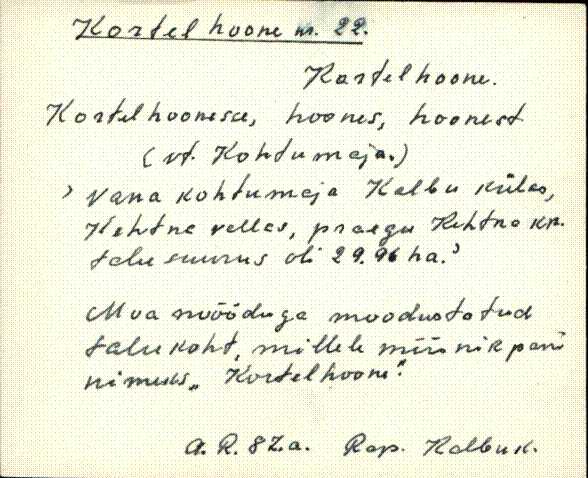 Kortelhoone nr. 22.
Kortelhoone.
Kortelhoonesse, hoones, hoonest
(vt. Kohtumaja.)
› vana kohtumaja Kalbu külas,
Kehtna vallas, praegu Kehtna kn.
talu suurus oli 29.96 ha.›
Maa mõõduga moodustatud
talukoht, millele mõisnik pani
nimeks „Kortelhoone".
A. R. 87.a. Rap. Kalbuk.